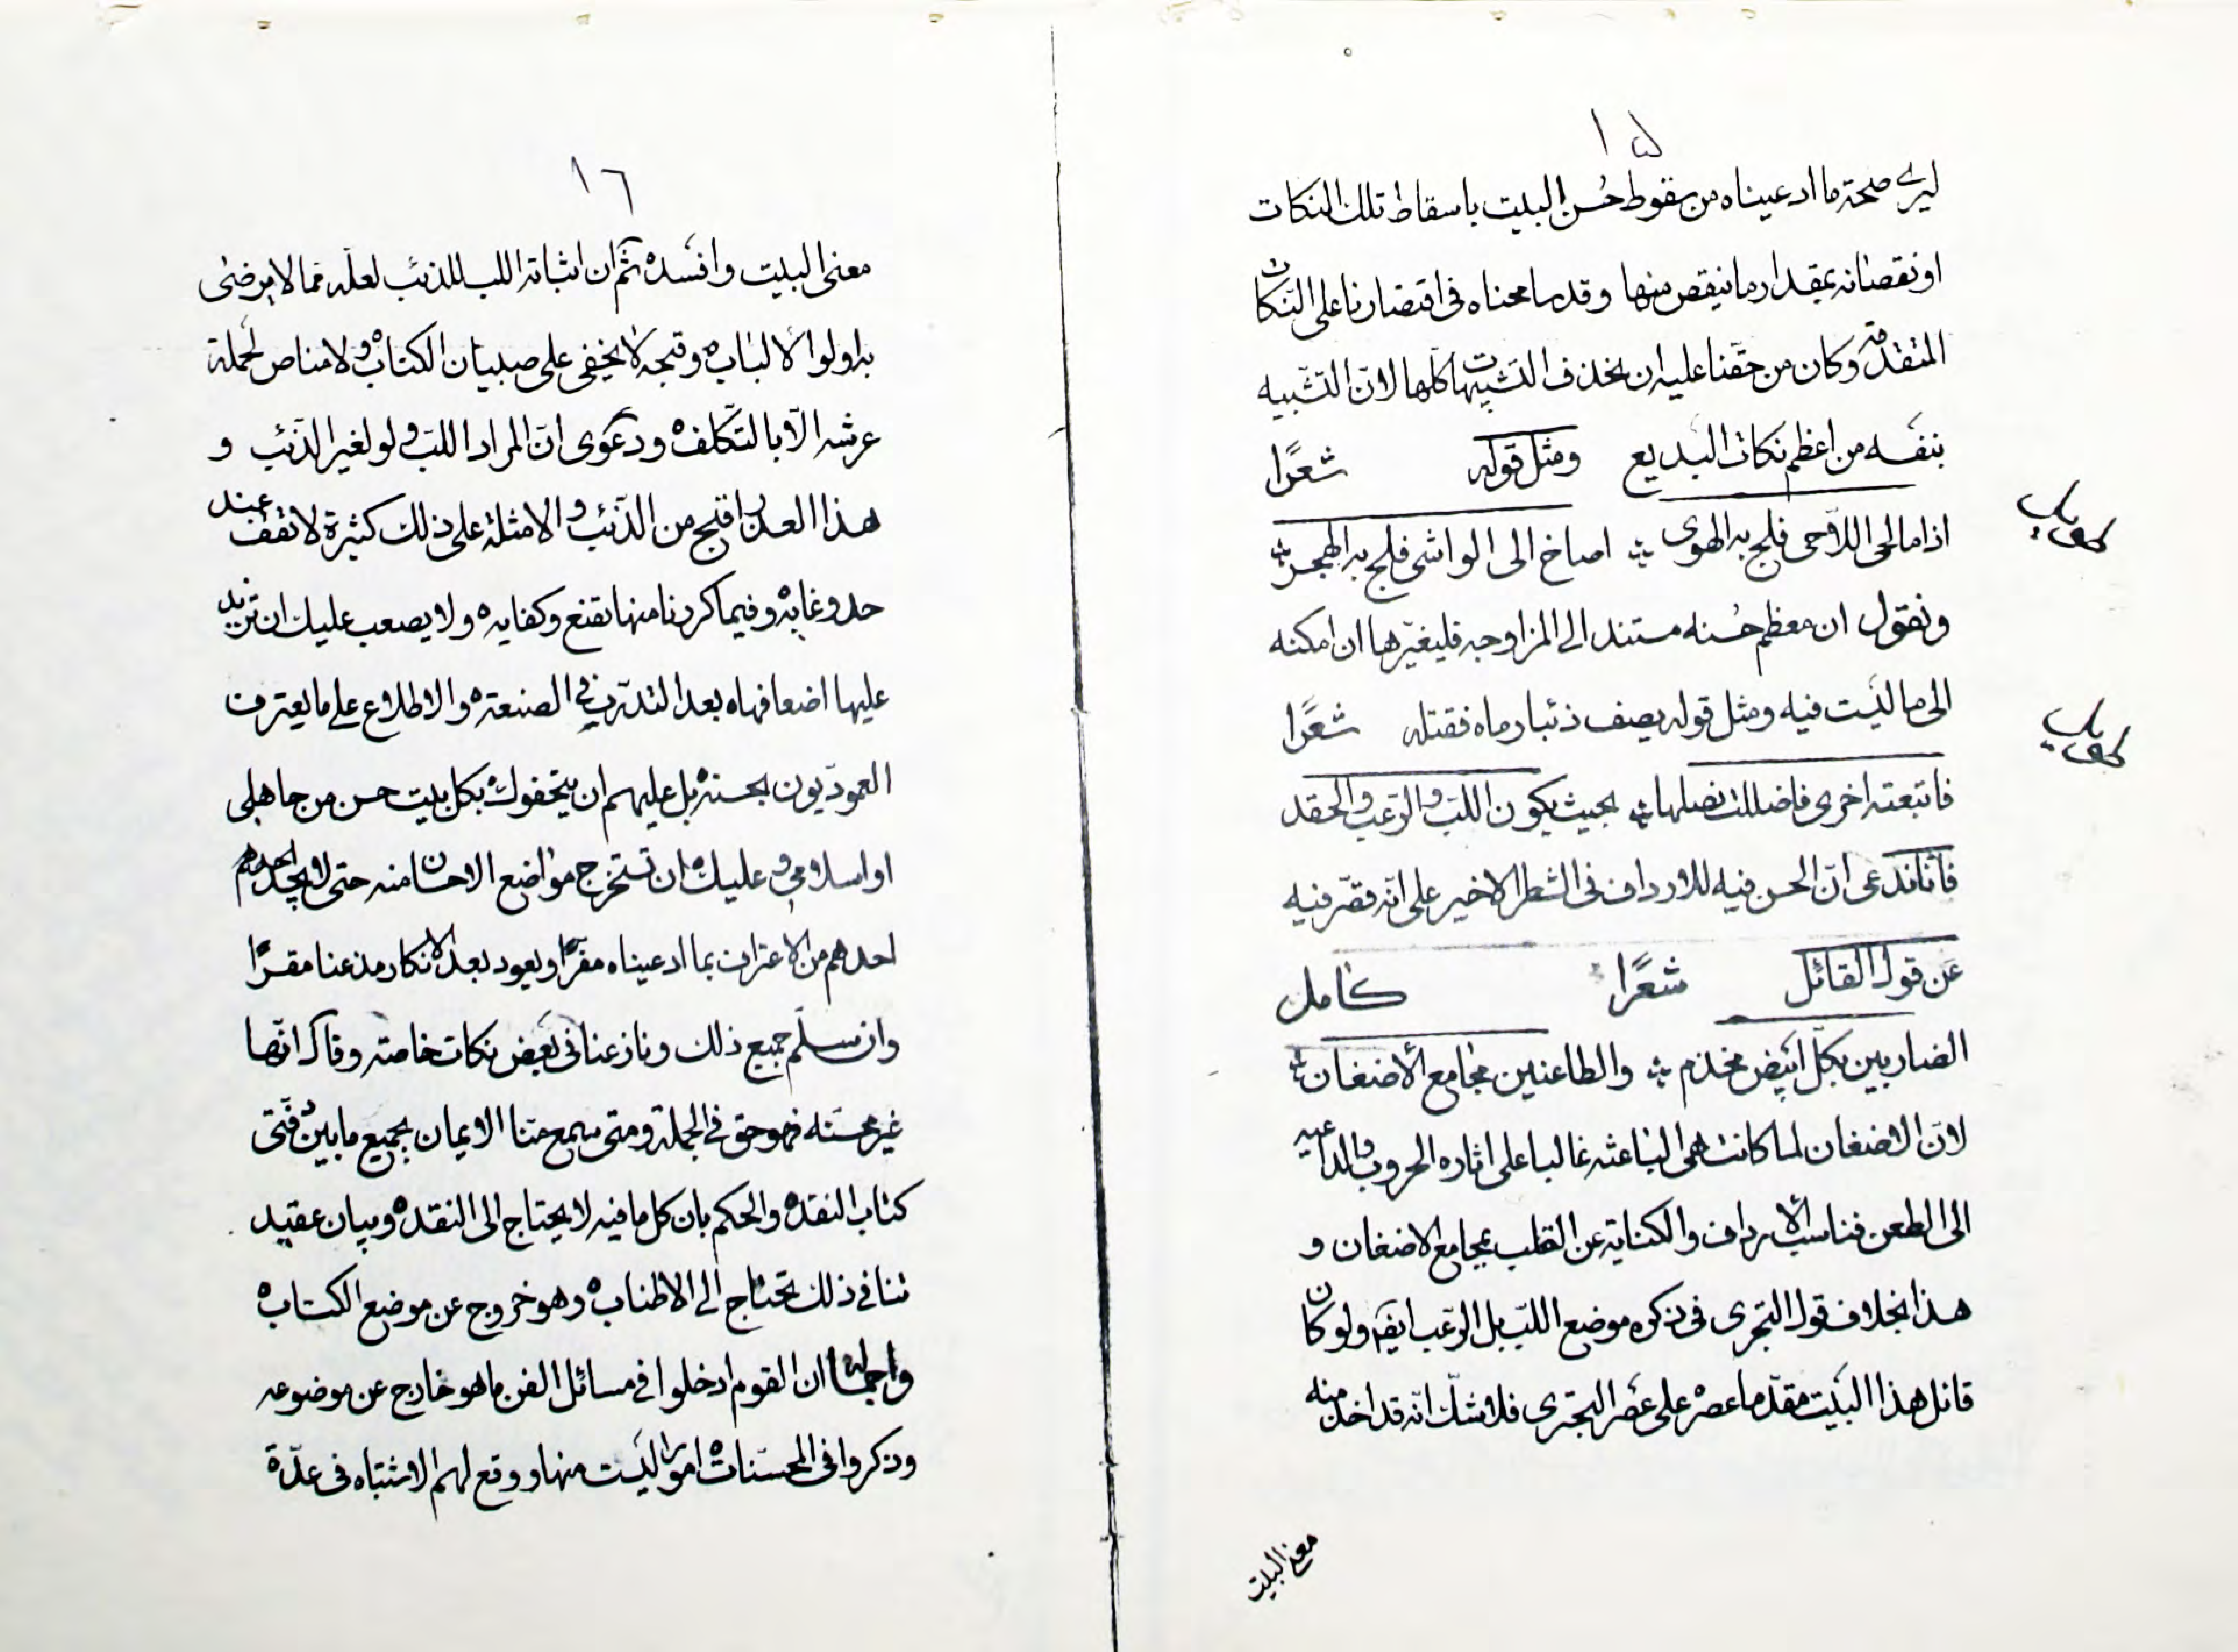 ١٥
ليرى صحة ما ادعيناه من سقوط حُسن البيت باسقاط تلك النكات
او نقصانه بمقدار ما نيقص منها وقد سامحناه فى اقتصارنا على النّكات
المتقدمة وكان من حقّنا عليه ان نحذف التشبيهات كلها لانّ التّشبيه
بنفسه من اعظم نكات البديع ومثل قوله شعرًا
طويل
اذا ما لحى اللاّحى فلج به الهوى اصاخ الى الواشى فلج به الهجر
ونقول ان معظم حُسنه مستند الى المزاوجه فليغيّرها ان امكنه
الى ما ليست فيه ومثل قوله يصف ذئبا رماه فقتله شعرًا
طويل
فاتبعته اخرى فاضللت نصلها بحيث يكون اللبّ والرّعب والحقد
فانا ندعى انّ الحسن فيه للارداف فى الشطر الاخير على انّه قصّر فيه
عن قول القائل شعرًا كامل
الضاربين بكلّ ابيض مخذم والطاعنين مجامع الأضغان
لانّ الاضغان لما كانت هى الباعثه غالبا على اثاره الحروب والداعيه
الى الطعن فناسب الأرداف والكناية عن القلب بمجامع الاضغان و
هذا بخلاف قول البحترى فى ذكره موضع اللبّ بل الرّعب ايضًا ولو كان
قائل هذا البيت مقدّما عصره على عصر البحترى فلا شكّ انّه قد اخذ منه
معنى البيت
١٦
معنى البيت وافسده ثمّ ان اثباته اللب للذئب لعلّه مما لا يرضى
به اولوا الالباب وقبحه لا يخفى على صبيان الكتاب ولا مناص لحملة
عرشه الاّ بالتّكلف ودعوى انّ المراد اللبّ ولو لغير الذّئب و
هذا العذر اقبح من الذّئب والامثلة على ذلك كثيرة لا تقف عند
حد وغايه وفيما كردنا منها تقنع وكفايه ولا يصعب عليك ان تزيد
عليها اضعافها بعد التدرّب فى الصنعه والاطلاع على ما يعترف
العموديون بحسنه بل عليهم ان يتحفوك بكل بيت حسن من جاهلى
او اسلامى وعليك ان تستخرج مواضع الاحسان منه حتى لا يجد
احدهم من الاعتراف بما ادعيناه مفرًّا ويعود بعد الانكار مذعنا مقرًّا
وان سلّم جميع ذلك ونازعنا فى بعض نكات خاصته وقال انّها
غير محسنه فهو حق فى الجملة ومتى سمع منّا الايمان بجميع ما بين دفّتى
كتاب النقد والحكم بان كل ما فيه لا يحتاج الى النقد وبيان عقيد
تنا فى ذلك تحتاج الى الاطناب وهو خروج عن موضع الكتاب
واجمالها ان القوم ادخلوا فى مسائل الفن ما هو خارج عن موضوعه
وذكروا فى المحسّنات امورا ليست منها ووقع لهم الاشتباه فى عدّة